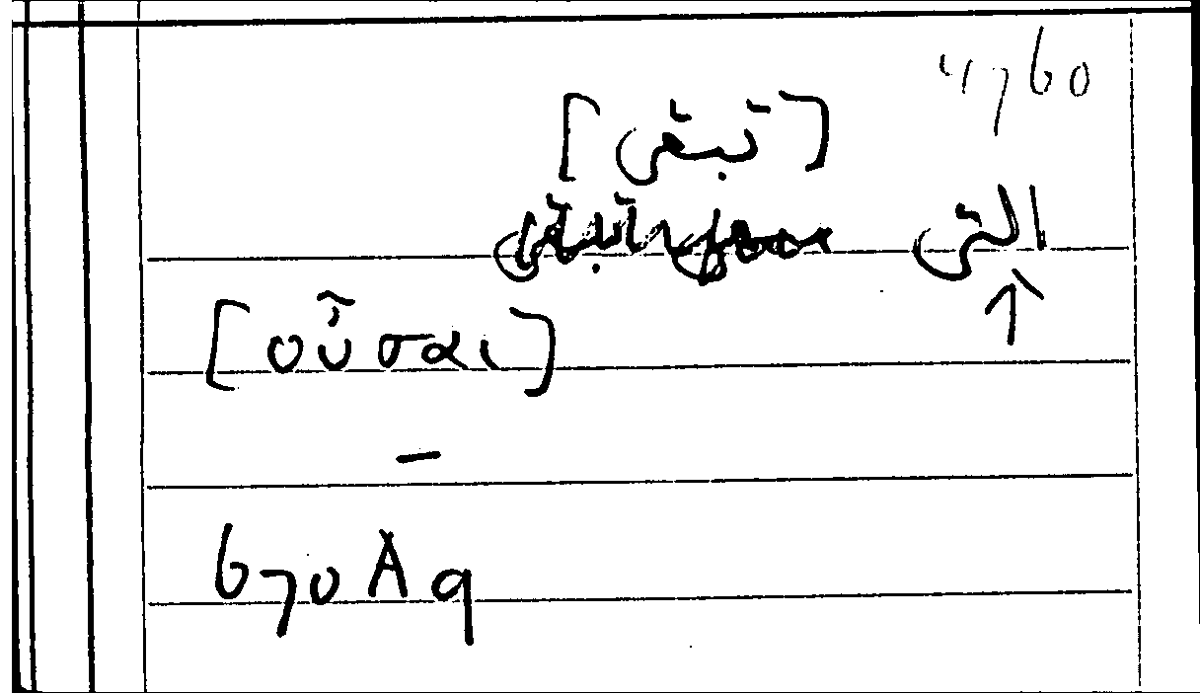 4760
[تبقى]
التى
↑
[οὖσαι]
–
670A9